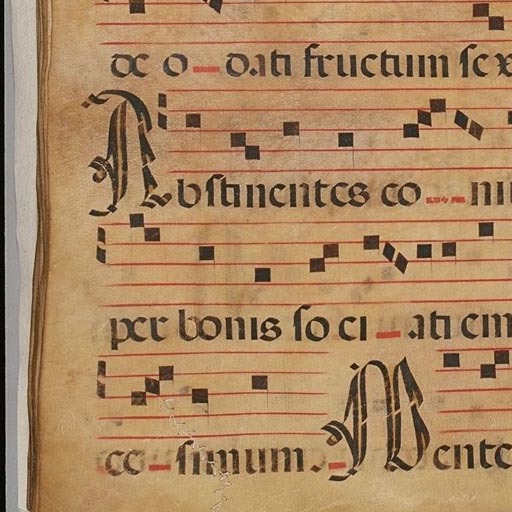 de o dati fructum sex
Abstinentes co ni
per bonis so ci ati em
ce simum. Mente